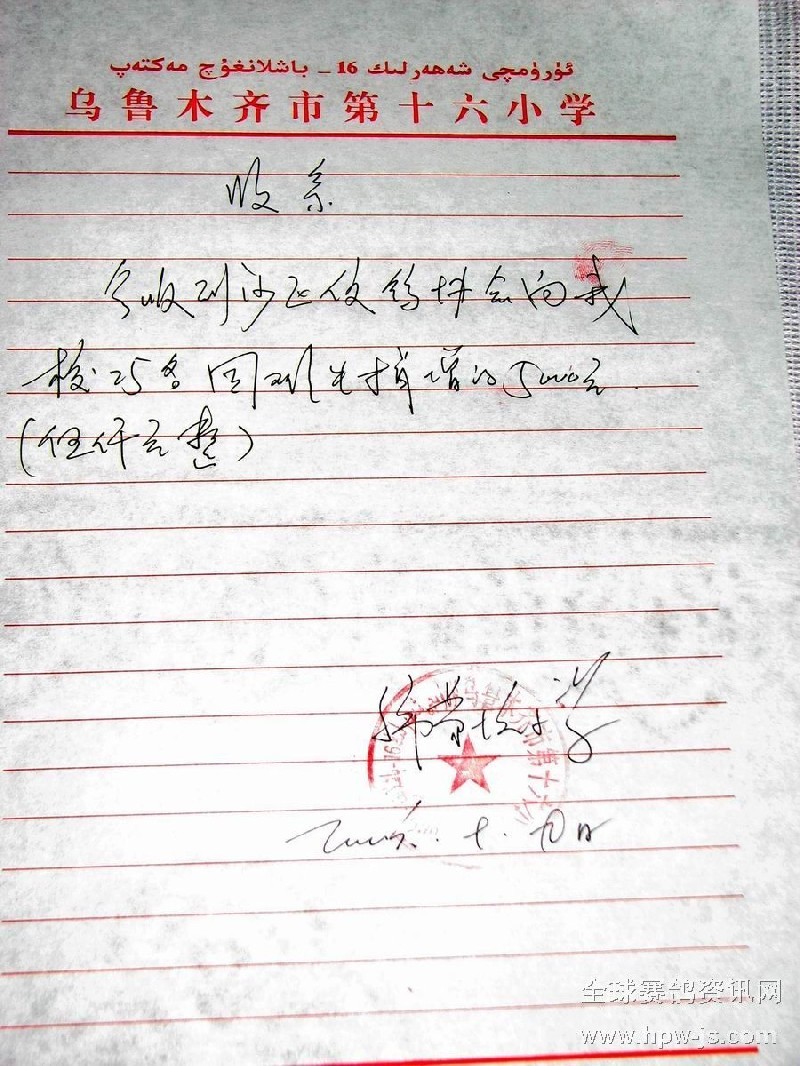 ئۈرۈمچى شەھەرلىك 16 - باشلانغۇچ مەكتەپ
乌鲁木齐市第十六小学
收条
今收到沙区信鸽协会向我
校25名困难生捐赠的5000元.
(伍仟元整)
乌鲁木齐市第十六小学
小学
全球赛鸽资讯网
www.hpw-js.com